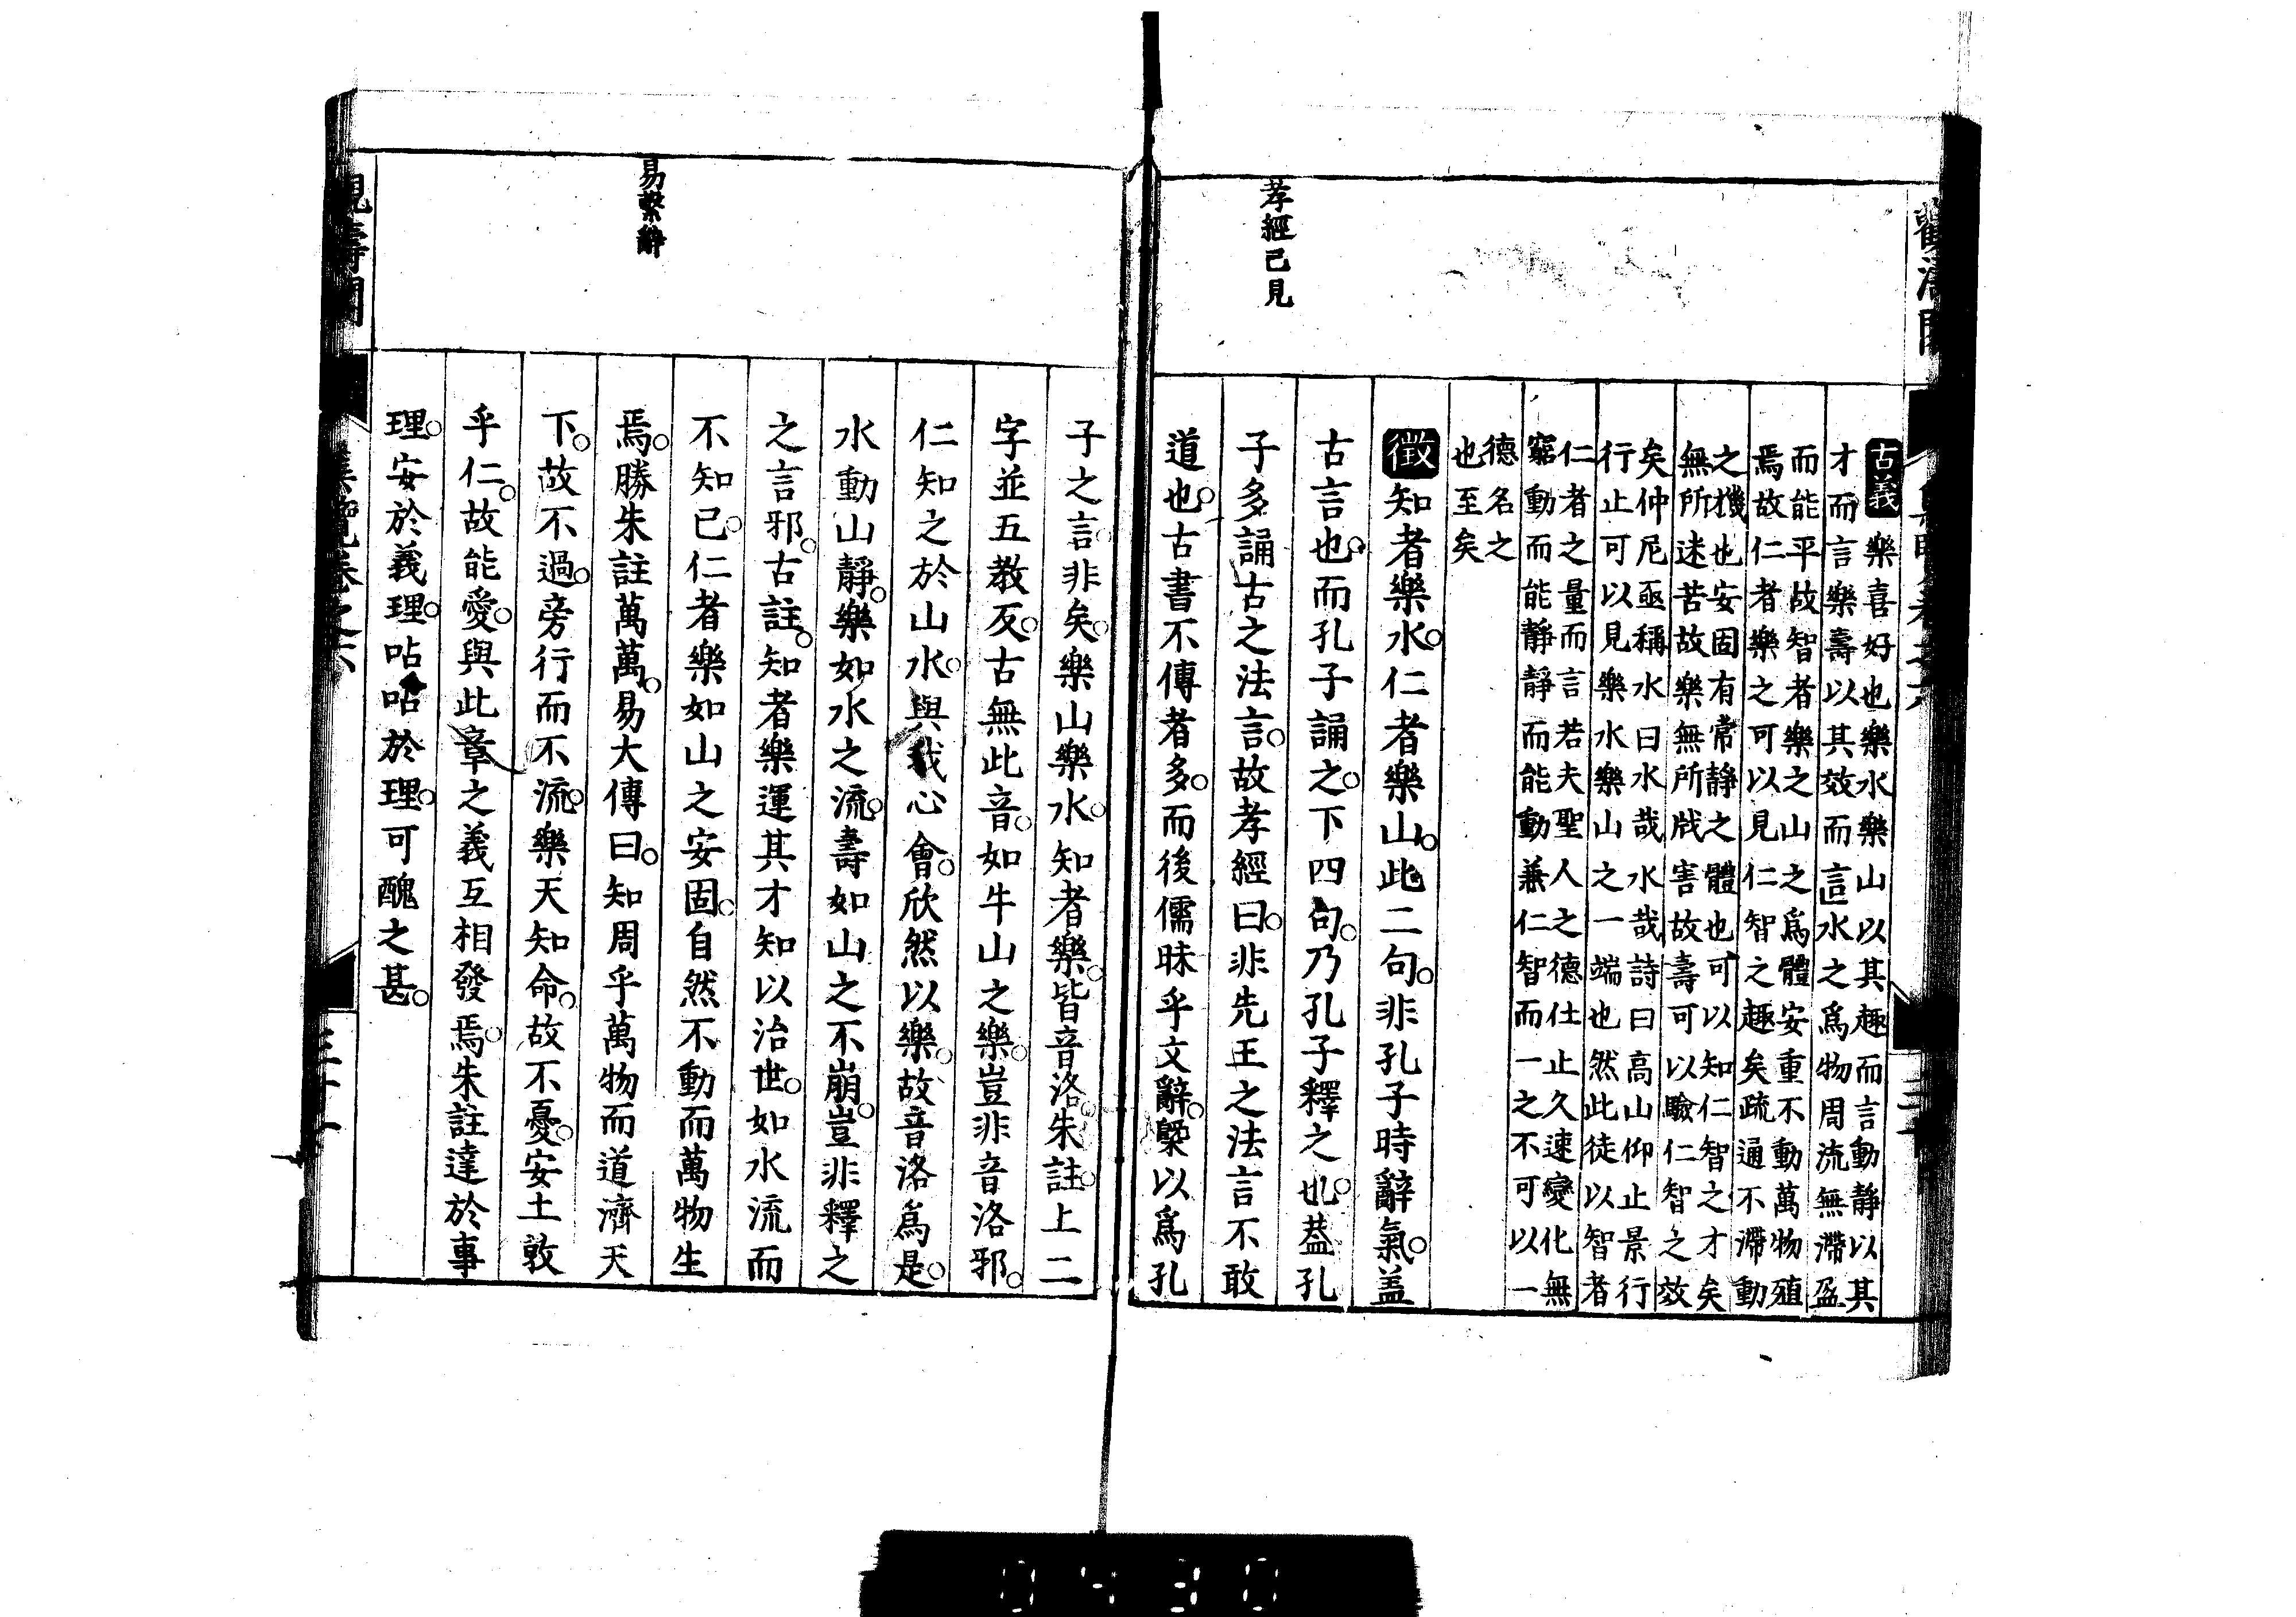 孝經已見
古義樂喜好也樂水樂山以其趣而言動靜以其
才而言樂壽以其效而言水之爲物周流無滯盈
而能平故智者樂之山之爲體安重不動萬物殖
焉故仁者樂之可以見仁智之趣矣疏通不滯動
之機也安固有常靜之體也可以知仁智之才矣
無所迷苦故樂無所戕害故壽可以驗仁智之效
矣仲尼亟稱水曰水哉水哉詩曰高山仰止景行
行止可以見樂水樂山之一端也然此徒以智者
仁者之量而言若夫聖人之德仕止久速變化無
窮動而能靜靜而能動兼仁智而一之不可以一
德名之
也至矣
徵知者樂水。仁者樂山。此二句。非孔子時辭氣。盖
古言也。而孔子誦之。下四句。乃孔子釋之也。蓋孔
子多誦古之法言。故孝經曰。非先王之法言不敢
道也。古書不傳者多。而後儒昧乎文辭。槩以爲孔
易繫辭
子之言非矣。樂山樂水。知者樂。皆音洛。朱註。上二
字並五教反。古無此音。如牛山之樂。豈非音洛邪。
仁知之於山水。與我心會。欣然以樂。故音洛爲是。
水動山靜。樂如水之流。壽如山之不崩。豈非釋之
之言邪。古註。知者樂運其才知以治世。如水流而
不知已。仁者樂如山之安固。自然不動而萬物生
焉。勝朱註萬萬。易大傳曰。知周乎萬物而道濟天
下。故不過。旁行而不流。樂天知命。故不憂。安土敦
乎仁。故能愛。與此章之義互相發焉。朱註達於事
理。安於義理。呫呫於理。可醜之甚。